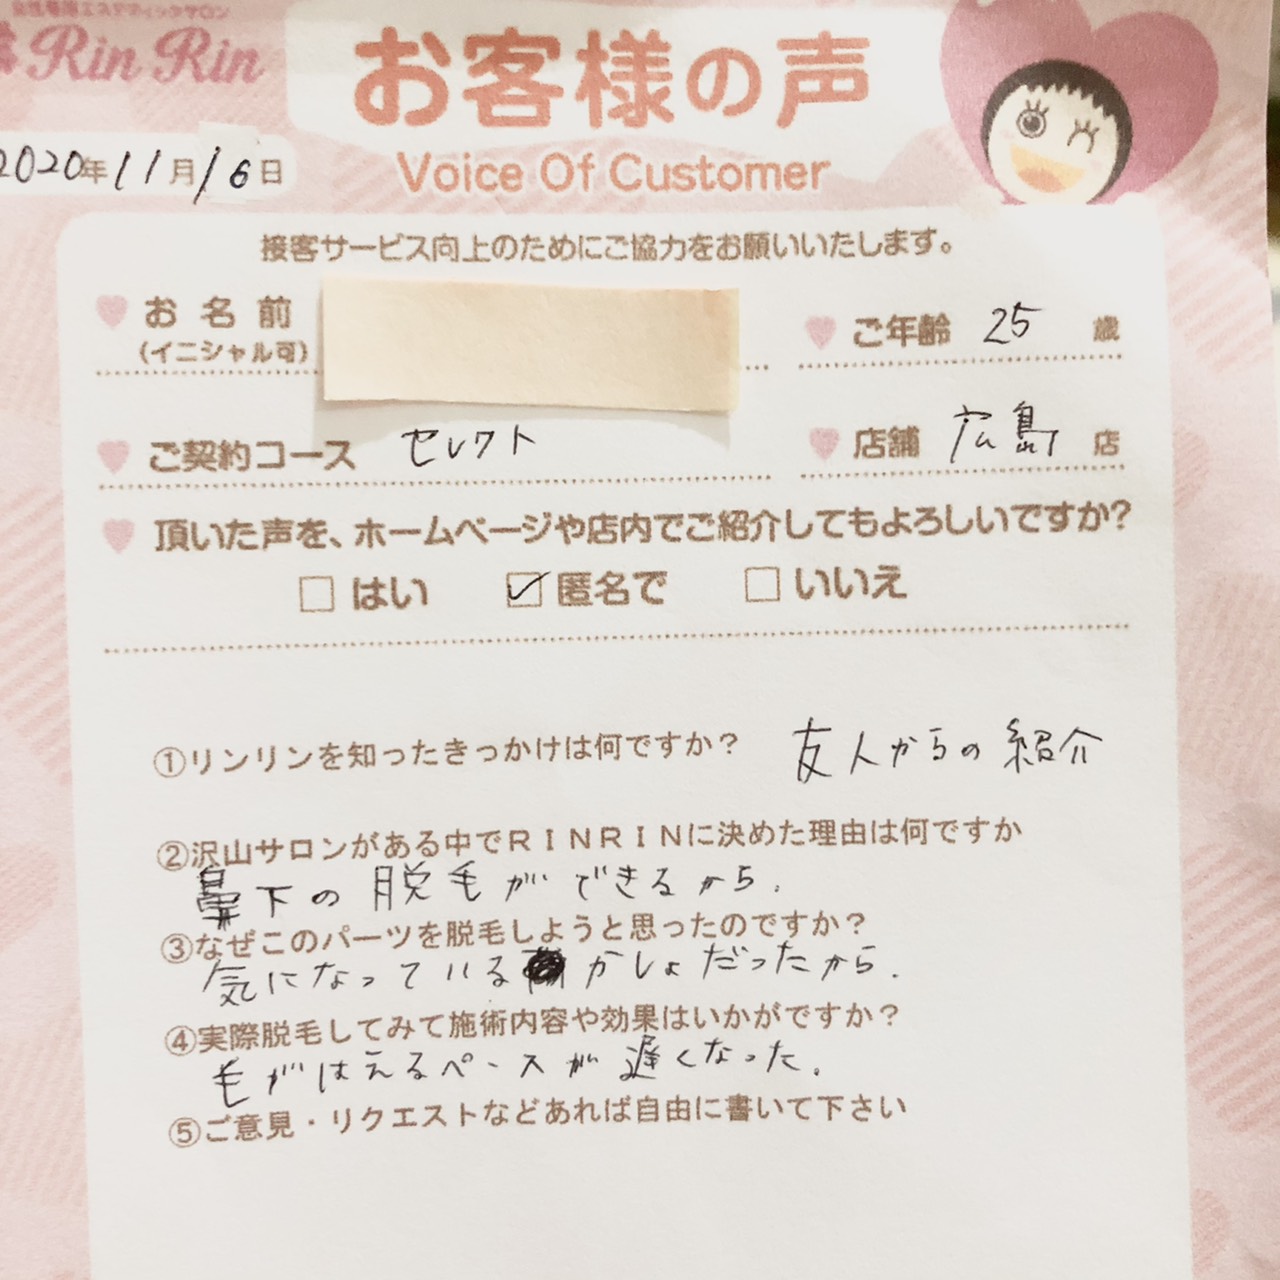 女性専用エステティックサロン
Rin Rin
お客様の声
Voice Of Customer
2020年11月16日
接客サービス向上のためにご協力をお願いいたします。
お名前
(イニシャル可)
ご年齢 25 歳
ご契約コース セレクト
店舗 広島 店
頂いた声を、ホームページや店内でご紹介してもよろしいですか?
はい 匿名で いいえ
①リンリンを知ったきっかけは何ですか? 友人からの紹介
②沢山サロンがある中でRINRINに決めた理由は何ですか
鼻下の脱毛ができるから.
③なぜこのパーツを脱毛しようと思ったのですか?
気になっている かしょだったから.
④実際脱毛してみて施術内容や効果はいかがですか?
毛がはえるペースが遅くなった.
⑤ご意見・リクエストなどあれば自由に書いて下さい